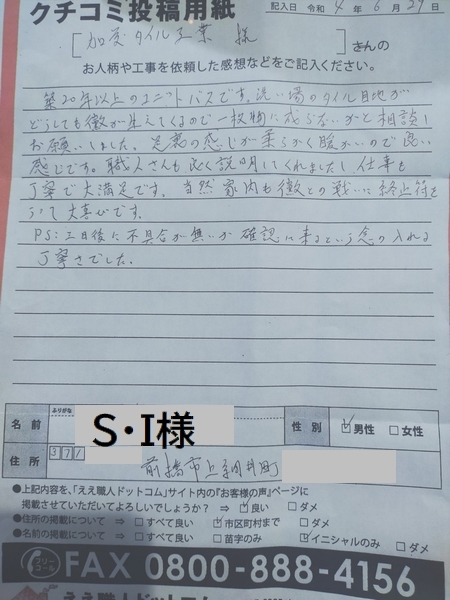 クチコミ投稿用紙
記入日 令和 4年 6月 29日
[加受タイル工業 様] さんの
お人柄や工事を依頼した感想などをご記入ください。
築20年以上のユニットバスです。洗い場のタイル目地が
どうしても黴が生えてくるので一枚物に成らないかと相談し
お願いしました。足裏の感じが柔らかく暖かいので良い
感じです。職人さんも良く説明してくれましたし仕事も
丁寧で大満足です。当然家内も黴との戦いに終止符を
うって大喜びです。
PS:三日後に不具合が無いか確認に来るという念の入れる
丁寧さでした。
ふりがな
名前 S・I様 性別 ☑男性 □女性
住所 371 前橋市上細井町
●上記内容を、「ええ職人ドットコム」サイト内の『お客様の声』ページに
掲載させていただいてよろしいでしょうか? ⇒ ☑良い □ダメ
●住所の掲載について ⇒ □すべて良い ☑市区町村まで □ダメ
●名前の掲載について ⇒ □すべて良い □苗字のみ ☑イニシャルのみ □ダメ
フリーコール FAX 0800-888-4156
ええ職人ドットコム